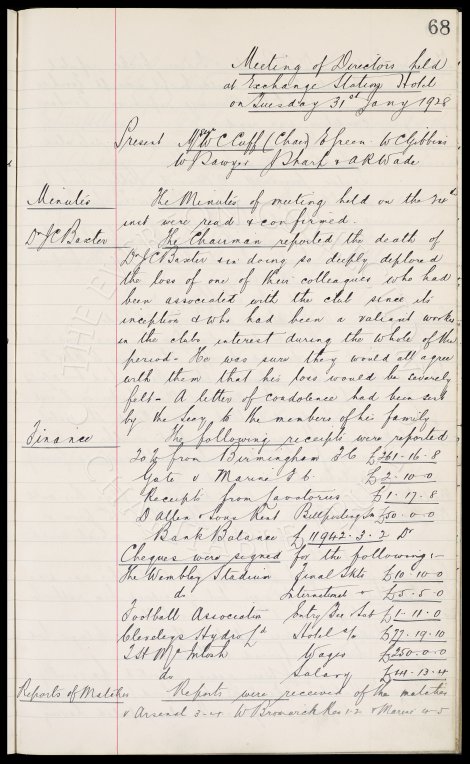 68
Meeting of Directors held
at Exchange Station Hotel
on Tuesday 31st Jany 1928
Present Messrs W C Cuff (Chair) E Green W C Gibbins
W Sawyer J Sharp & A R Wade
Minutes The Minutes of meeting held on the
inst were read & confirmed.
Dr J C Baxter The Chairman reported the death of
Dr J C Baxter & in doing so deeply deplored
the loss of one of their colleagues who had
been associated with the club since its
inception & who had been a valiant worker
in the clubs interest during the whole of the
period - He was sure they would all agree
with them that his loss would be severely
felt - A letter of condolence had been sent
by the Secy to the members of his family
Finance The following receipts were reported
from Birmingham F C £261-16-8
Gate v Marine F C. £2-10-0
Receipts from Lavatories £1-17-8
D Allen & Sons Rent Billposting £50-0-0
Bank Balance £11942-3-2 Dr
Cheques were signed for the following:-
The Wembley Stadium Final Tkts £10-10-0
do International " £5-5-0
Football Association Entry Fee £1-11-0
Clevelys Hydro Ld Hotel a/c £77-19-10
T H McIntosh Wages £250-0-0
do Salary £44-13-4
Reports of Matches Reports were received of the matches
v Arsenal 3-4 W Bromwich Res 1-2 & Marine 4-5